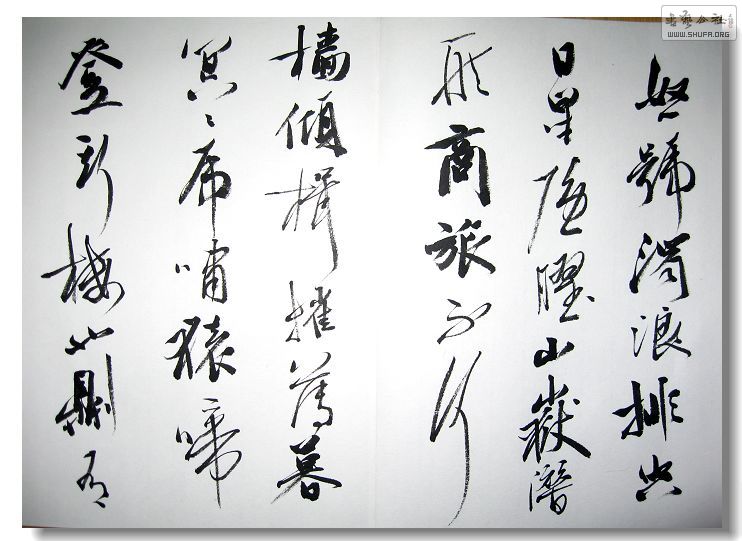 怒號濁浪排空
日星隱曜山嶽潛
形商旅不行
檣傾楫摧薄暮
冥〻虎嘯猿啼
登斯樓也則有
書藝公社
WWW.SHUFA.ORG